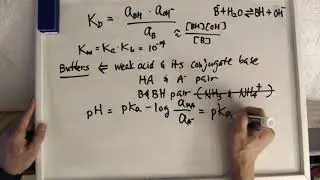 Kb = aBH · aOH- / aB ≈ [BH][OH] / [B]
B+H2O ⇌ BH+OH-
Kw = Ka · Kb = 10-14
Buffers ⇐ weak acid & its conjugate base
HA & A- pair
B & BH pair (NH3 & NH4+)
pH = pKa - log aHA / aA- = pKa